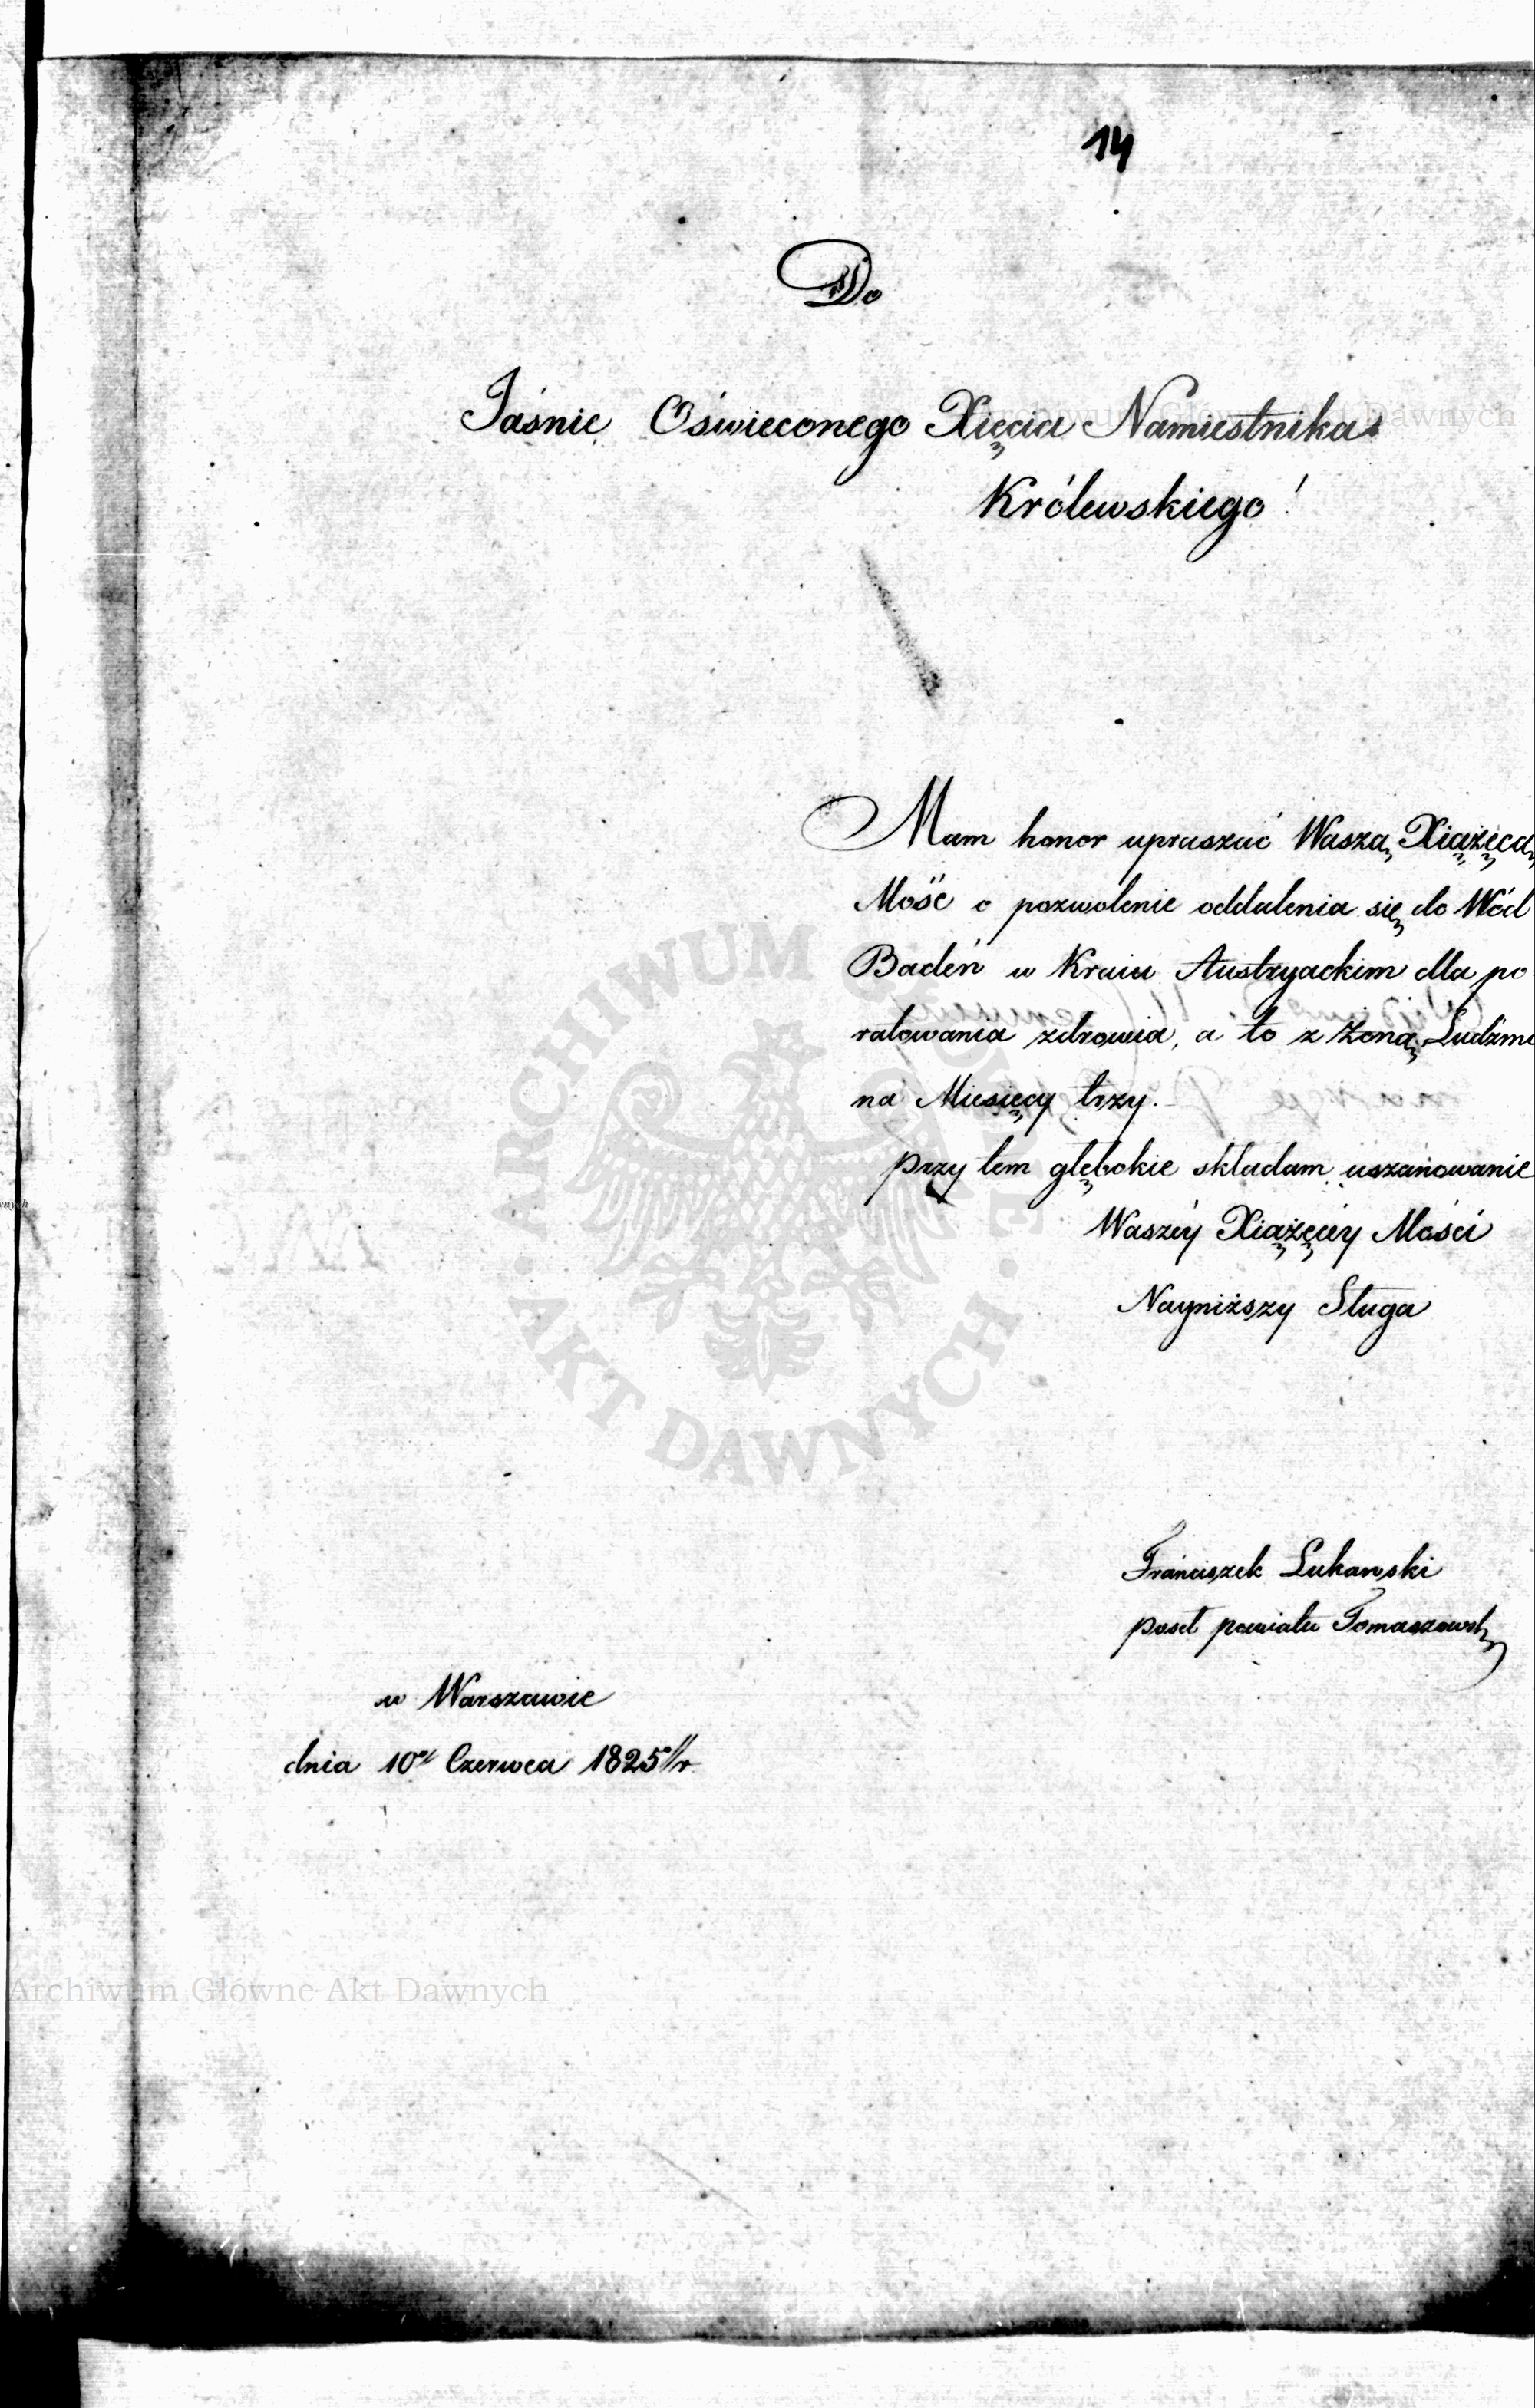 14
Do
Jaśnie Oświeconego Xięcia Namiestnika
Królewskiego!
Mam honor upraszać Waszą Xiążęcą
Mość o pozwolenie oddalenia się do Wód
Badeń w Kraiu Austryackim dla po
ratowania zdrowia, a to z Żoną, Ludźmi
na Miesięcy trzy.
przy tem głębokie składam uszanowanie
Waszéy Xiążęcéy Mości
Nayniższy Sługa
Franciszek Łukawski
poseł powiatu Tomaszowsk
w Warszawie
dnia 10º Czerwca 1825 r.
Archiwum Główne Akt Dawnych
ARCHIWUM GŁÓWNE · AKT DAWNYCH ·
Archiwum Główne Akt Dawnych